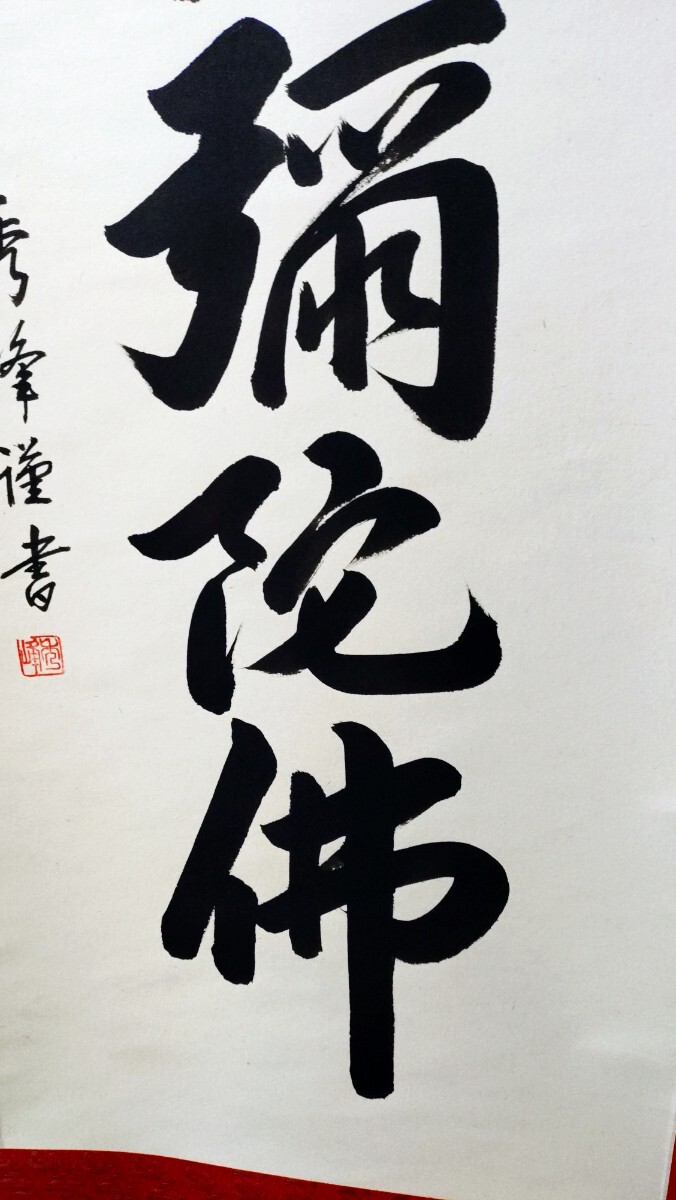 彌陀佛
秀峰謹書